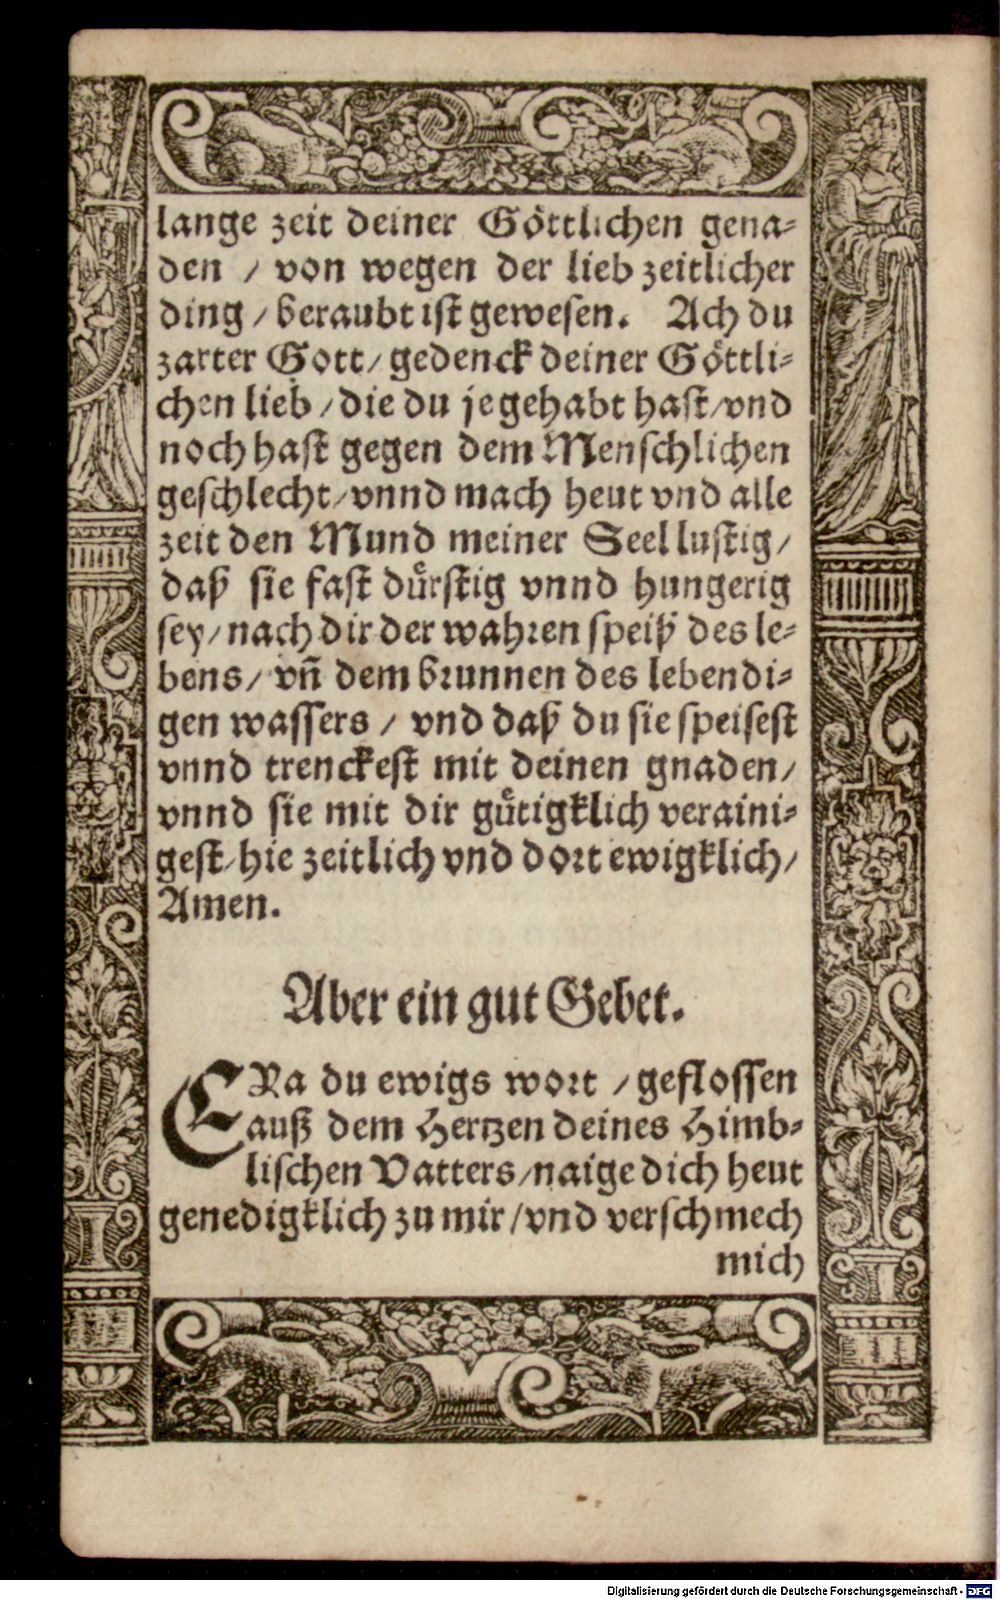 lange zeit deiner Göttlichen gena-
den / von wegen der lieb zeitlicher
ding / beraubt ist gewesen. Ach du
zarter Gott / gedenck deiner Göttli-
chen lieb / die du je gehabt hast / vnd
noch hast gegen dem Menschlichen
geschlecht / vnnd mach heut vnd alle
zeit den Mund meiner Seel lustig /
daß sie fast dürstig vnnd hungerig
sey / nach dir der wahren speiß des le-
bens / vñ dem brunnen des lebendi-
gen wassers / vnd daß du sie speisest
vnnd trenckest mit deinen gnaden /
vnnd sie mit dir gütigklich veraini-
gest / hie zeitlich vnd dort ewigklich /
Amen.
Aber ein gut Gebet.
ERa du ewigs wort / geflossen
auß dem Hertzen deines Himb-
lischen Vatters / naige dich heut
genedigklich zu mir / vnd verschmech
mich
Digitalisierung gefördert durch die Deutsche Forschungsgemeinschaft - DFG